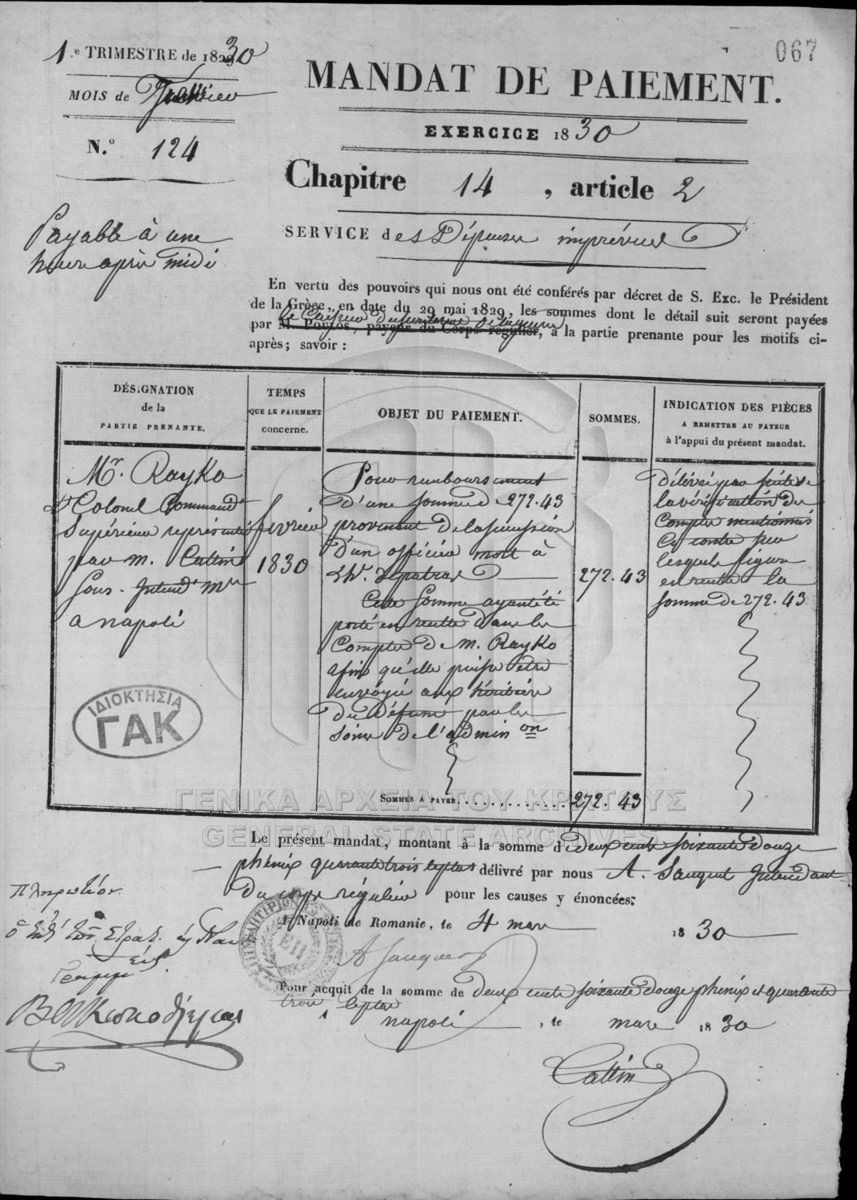 067
1.e TRIMESTRE de 1830
MOIS de
N.o 124
Payable à une
heure après midi
MANDAT DE PAIEMENT.
EXERCICE 1830
Chapitre 14, article 2
SERVICE des Dépenses imprévues
En vertu des pouvoirs qui nous ont été conférés par décret de S. Exc. le Président
de la Grèce, en date du 29 mai 1829, les sommes dont le détail suit seront payées
par M. Poujos, payeur du Corps régulier, à la partie prenante pour les motifs ci-
après; savoir :
DÉSIGNATION
de la
PARTIE PRENANTE.
TEMPS
QUE LE PAIEMENT
concerne.
OBJET DU PAIEMENT.
SOMMES.
INDICATION DES PIÈCES
A REMETTRE AU PAYEUR
à l'appui du présent mandat.
Mr. Rayko
Lt Colonel Commandt
Supérieur représenté
par M. Cattin
Sous-Intendt Mre
a napoli
février
1830
Pour remboursement
d'une somme de 272.43
provenant de la succession
d'un officier mort à
Cette somme ayant été
porté en recette dans les
Comptes de M. Rayko
afin qu'elle puisse être
envoyée aux héritiers
du Défunt par les
soins de l'admin on
272.43
Délivré par suite de
la vérification du
Compte mentionné
ci contre sur
lesquels figure
en recette la
somme de 272.43
SOMMES A PAYER............ 272.43
ΙΔΙΟΚΤΗΣΙΑ
ΓΑΚ
ΓΕΝΙΚΑ ΑΡΧΕΙΑ ΤΟΥ ΚΡΑΤΟΥΣ
GENERAL STATE ARCHIVES
Le présent mandat, montant à la somme de deux cents soixante douze
phénix quarante trois leptas délivré par nous A. Intendant
Du corps régulier pour les causes y énoncées.
A Napoli de Romanie, le 4 mars 1830
Pour acquit de la somme de deux cents soixante douze phénix et quarante
trois leptas
napoli, le mars 1830
Cattin